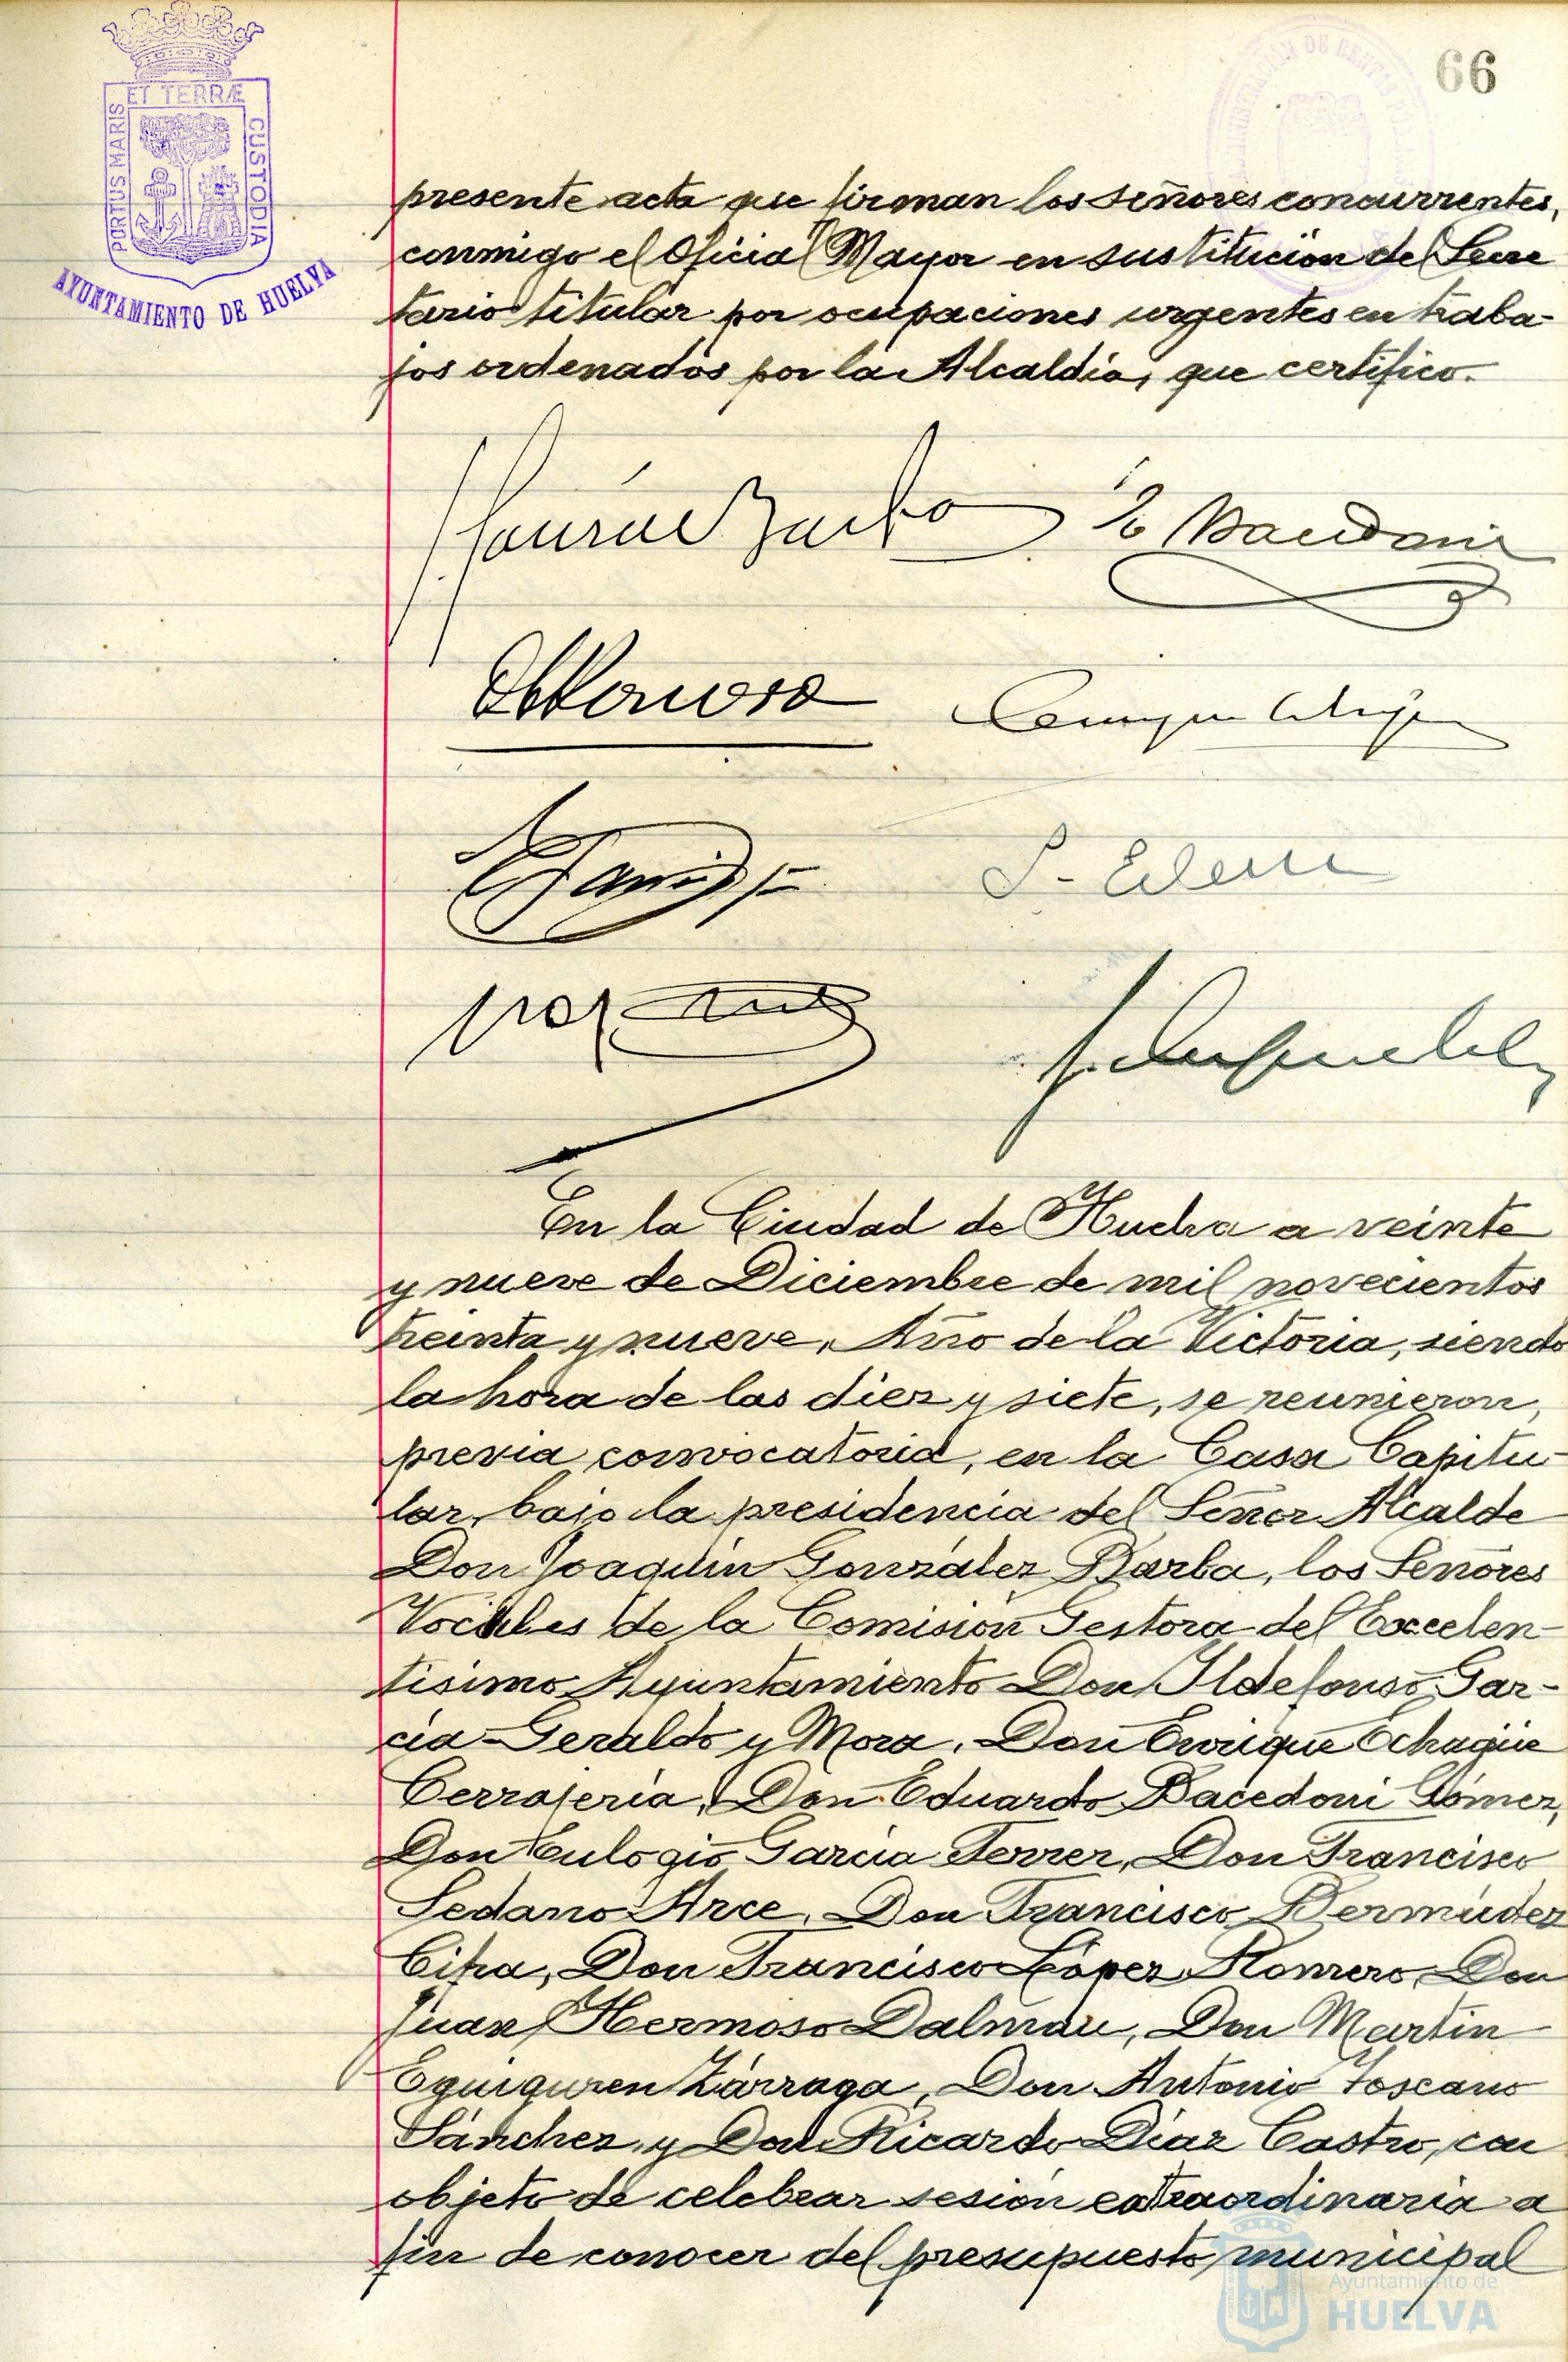 66
ET TERRÆ
PORTUS MARIS
CUSTODIA
AYUNTAMIENTO DE HUELVA
presente acta que firman los señores concurrentes,
conmigo el Oficial Mayor en sustitución del Secre
tario titular por ocupaciones urgentes en traba-
jos ordenados por la Alcaldía, que certifico.
En la Ciudad de Huelva a veinte
y nueve de Diciembre de mil novecientos
treinta y nueve, Año de la Victoria, siendo
la hora de las diez y siete, se reunieron,
previa convocatoria, en la Casa Capitu-
lar, bajo la presidencia del Señor Alcalde
Don Joaquín González Barba, los Señores
Vocales de la Comisión Gestora del Excelen-
tísimo Ayuntamiento Don Ildefonso Gar-
cía-Geraldo y Mora, Don Enrique Echagüe
Cerrajería, Don Eduardo Bacedoni Gómez,
Don Eulogio García Ferrer, Don Francisco
Sedano Arce, Don Francisco Bermúdez
Don Francisco López Romero, Don
Juan Hermoso Dalmau, Don Martín
Eguiguren Zárraga, Don Antonio Toscano
Sánchez, y Don Ricardo Díaz Castro, con
objeto de celebrar sesión extraordinaria a
fin de conocer del presupuesto municipal
Ayuntamiento de
HUELVA